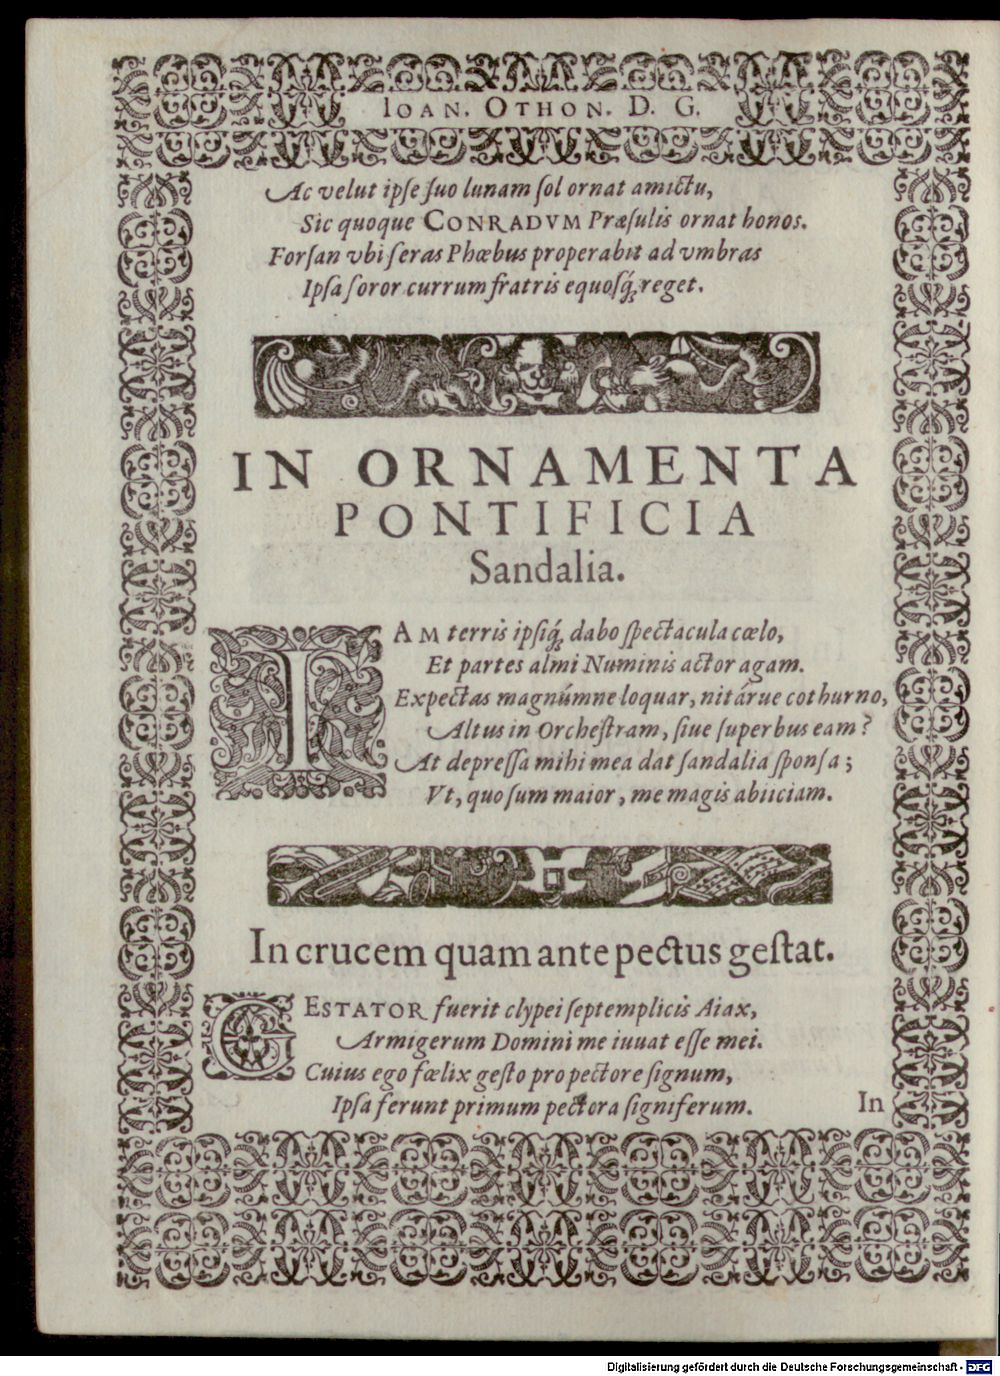 IOAN. OTHON. D. G.
Ac velut ipſe ſuo lunam ſol ornat amictu,
Sic quoque CONRADVM Præſulis ornat honos.
Forſan vbi ſeras Phœbus properabit ad vmbras
Ipſa ſoror currum fratris equoſq́; reget.
IN ORNAMENTA
PONTIFICIA
Sandalia.
IAM terris ipſiq́; dabo ſpectacula cœlo,
Et partes almi Numinis actor agam.
Expectas magnúmne loquar, nitárue cothurno,
Altus in Orcheſtram, ſiue ſuperbus eam?
At depreſſa mihi mea dat ſandalia ſponſa;
Vt, quo ſum maior, me magis abiiciam.
In crucem quam ante pectus geſtat.
GESTATOR fuerit clypei ſeptemplicis Aiax,
Armigerum Domini me iuuat eſſe mei.
Cuius ego fœlix geſto pro pectore ſignum,
Ipſa ferunt primum pectora ſigniferum.
In
Digitalisierung gefördert durch die Deutsche Forschungsgemeinschaft - DFG